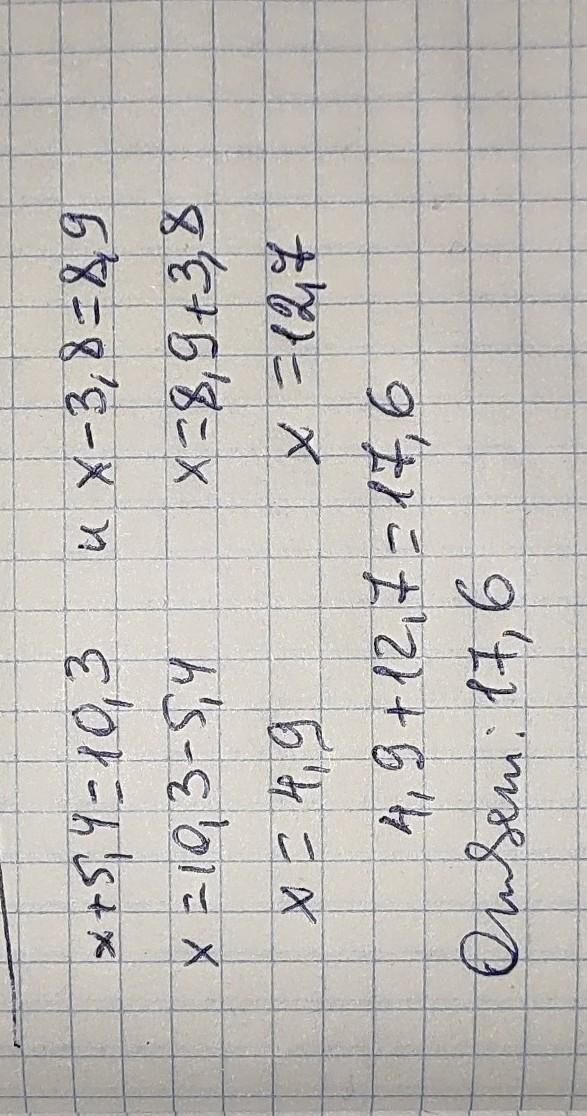 x+5,4=10,3 и x-3,8=8,9
x=10,3-5,4 x=8,9+3,8
x=4,9 x=12,7
4,9+12,7=17,6
Ответ: 17,6